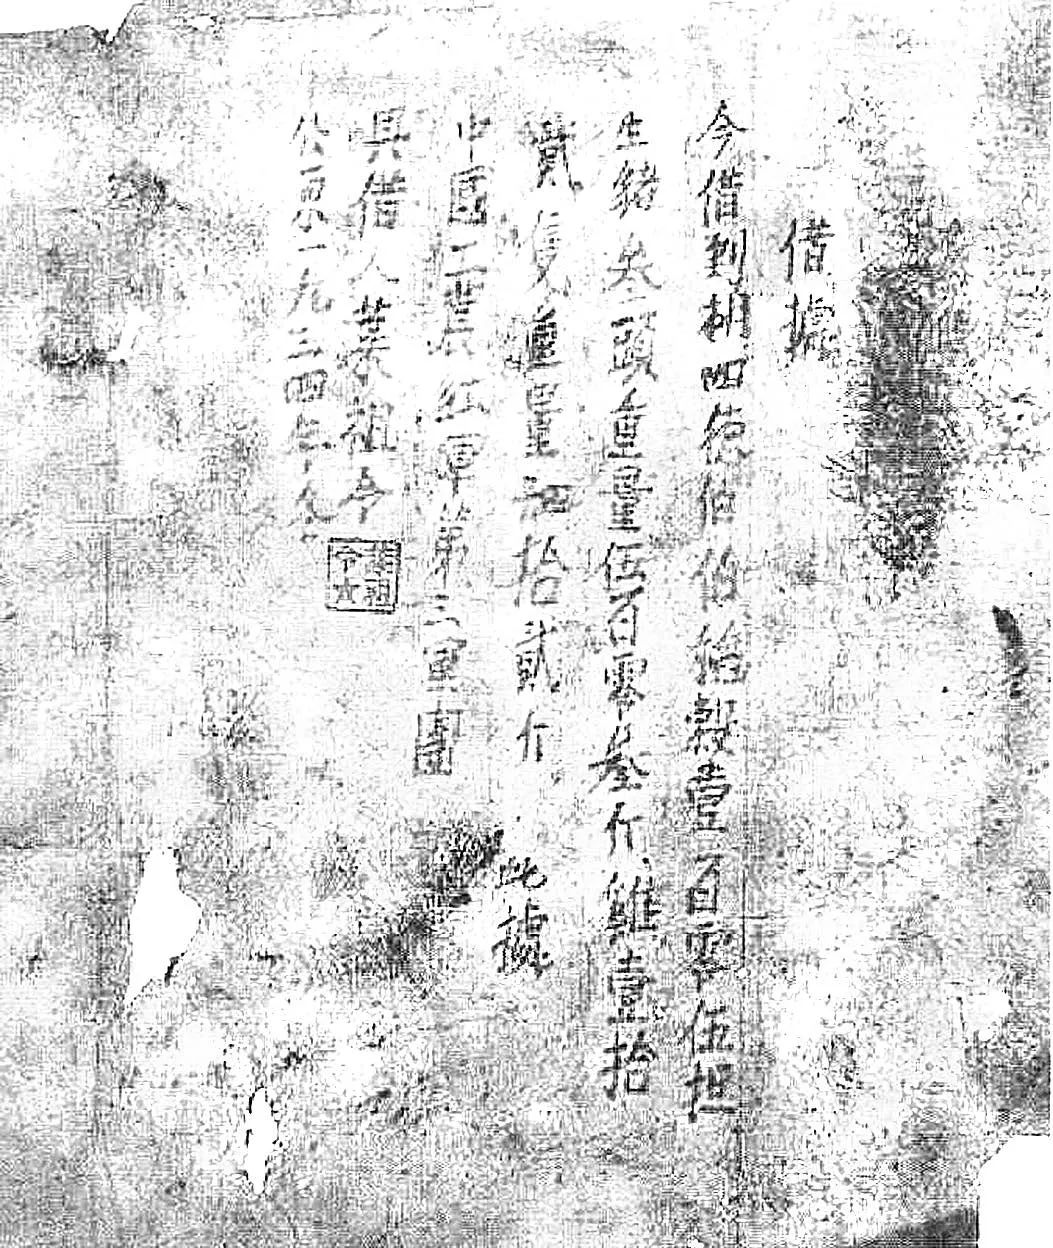 借據
今借到胡四德伯伯稻穀壹百零伍担
生猪叁頭重量伍百零叁斤雞壹拾
貳隻重量 拾貳斤 此據
中國工農紅軍第三軍團
具借人葉祖令
公 一九三四年